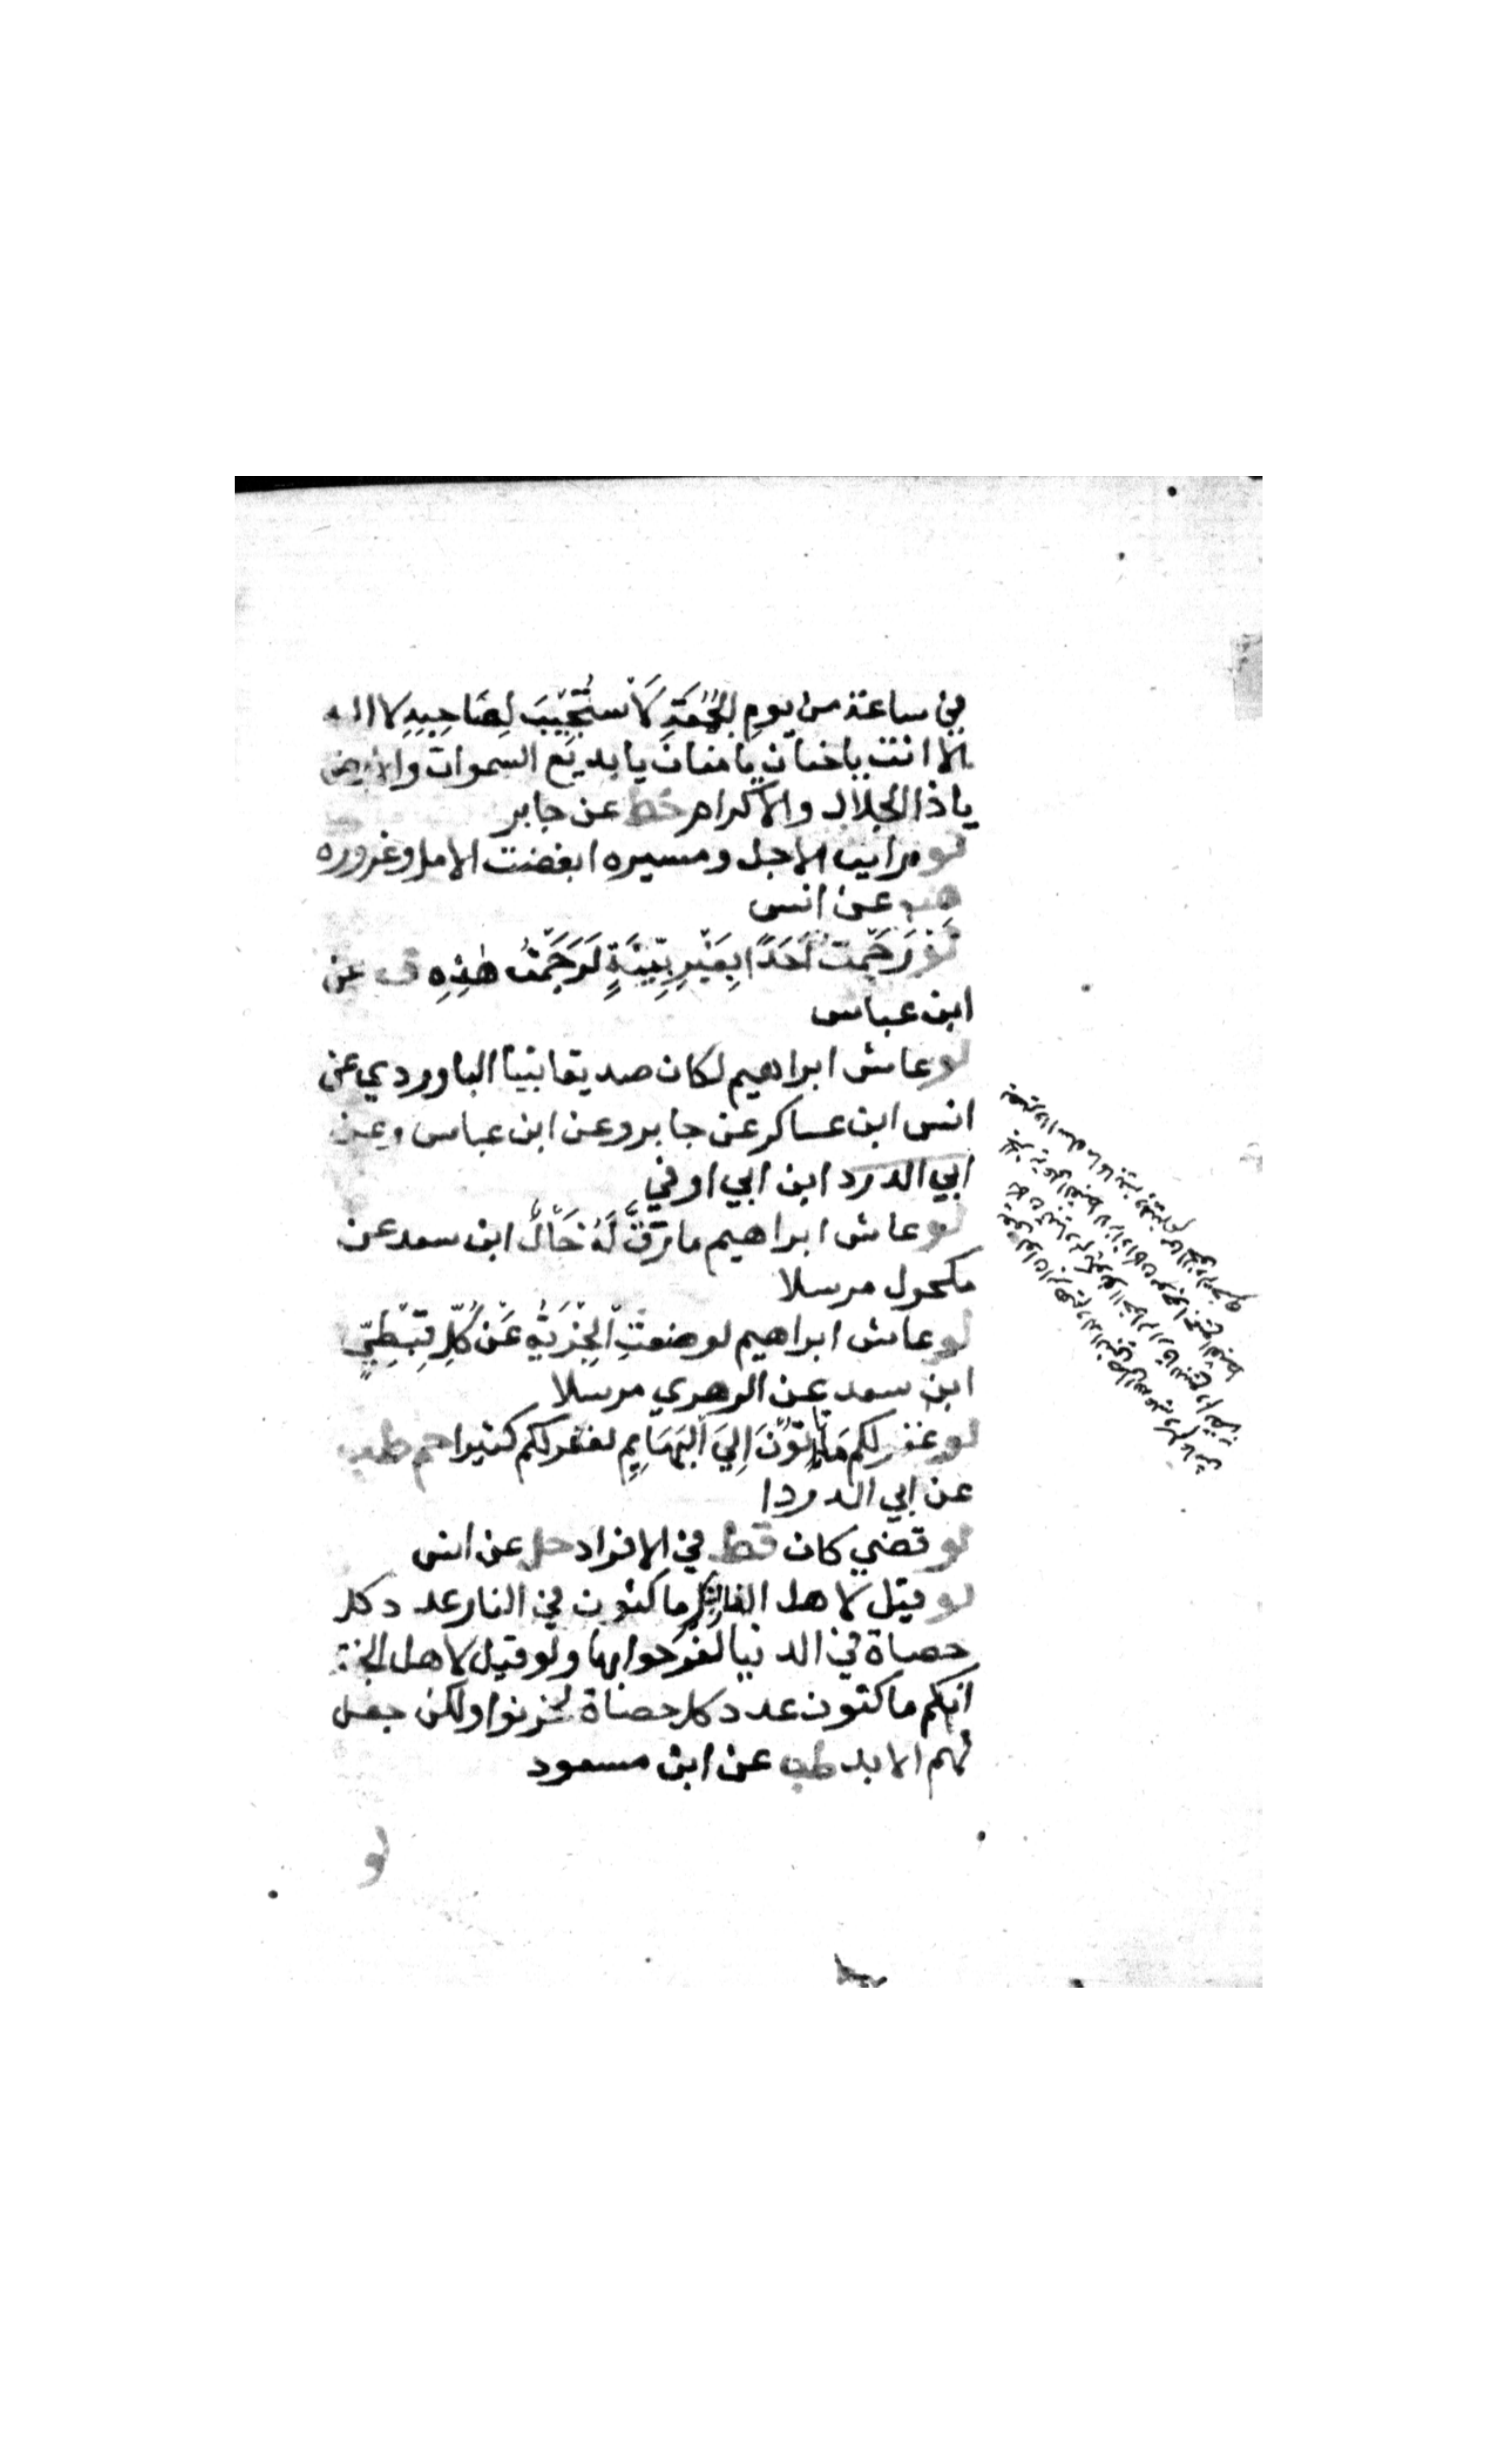 في ساعة من يومِ الجُمُعَةِ لَاسْتُجِيْبَ لِصَاحِبِهِ لا اله
الا انت ياحنان يا منان يا بديع السموات والارض
ياذا الجلال والاكرام خط عن جابر
لو رايت الاجل ومسيره ابغضت الامل وغروره
هب عن انس
لَوْ رَجَمْتُ اَحَدًا بِغَيْرِ بَيِّنَةٍ لَرَجَمْتُ هٰذِهِ ق عن
ابن عباس
لو عاش ابراهيم لكان صديقا نبيا الباوردي عن
انس ابن عساكر عن جابر وعن ابن عباس وعن
ابي الدرد ابن ابي اوفي
لو عاش ابراهيم ما رَقَّ لَهُ خَالٌ ابن سعد عن
مكحول مرسلا
لو عاش ابراهيم لوضعتِ الْجِزْيَةُ عَنْ كُلِّ قِبْطِيٍّ
ابن سعد عن الزهري مرسلا
لو غفر لكم مَا تأتُوْنَ اِلَيَ الْبَهَايِمِ لغفر لكم كثيرا حم طب
عن ابي الدردا
لو قضي كان قط في الافراد حل عن انس
لو قيل لاهل النار انكم ماكثون في النار عدد كل
حصاة في الدنيا لفرحوا بها ولو قيل لاهل الجنة
انكم ماكثون عدد كل حصاة لحزنوا ولكن جعل
لهم الابد طب عن ابن مسعود
لو